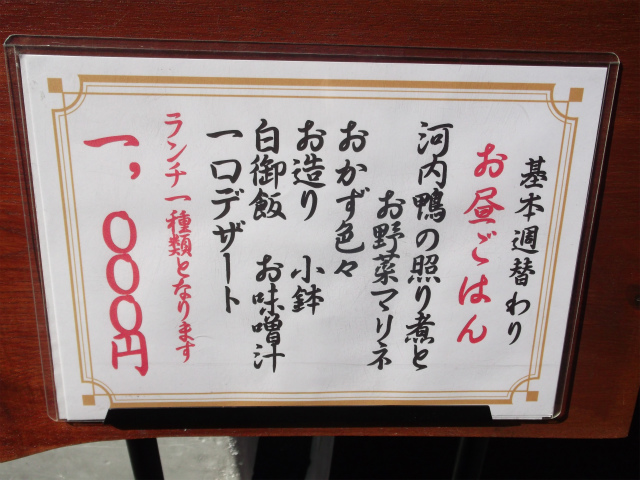 基本週替わり
お昼ごはん
河内鴨の照り煮と
お野菜マリネ
おかず色々
お造り 小鉢
白御飯 お味噌汁
一口デザート
ランチ一種類となります
一,〇〇〇円